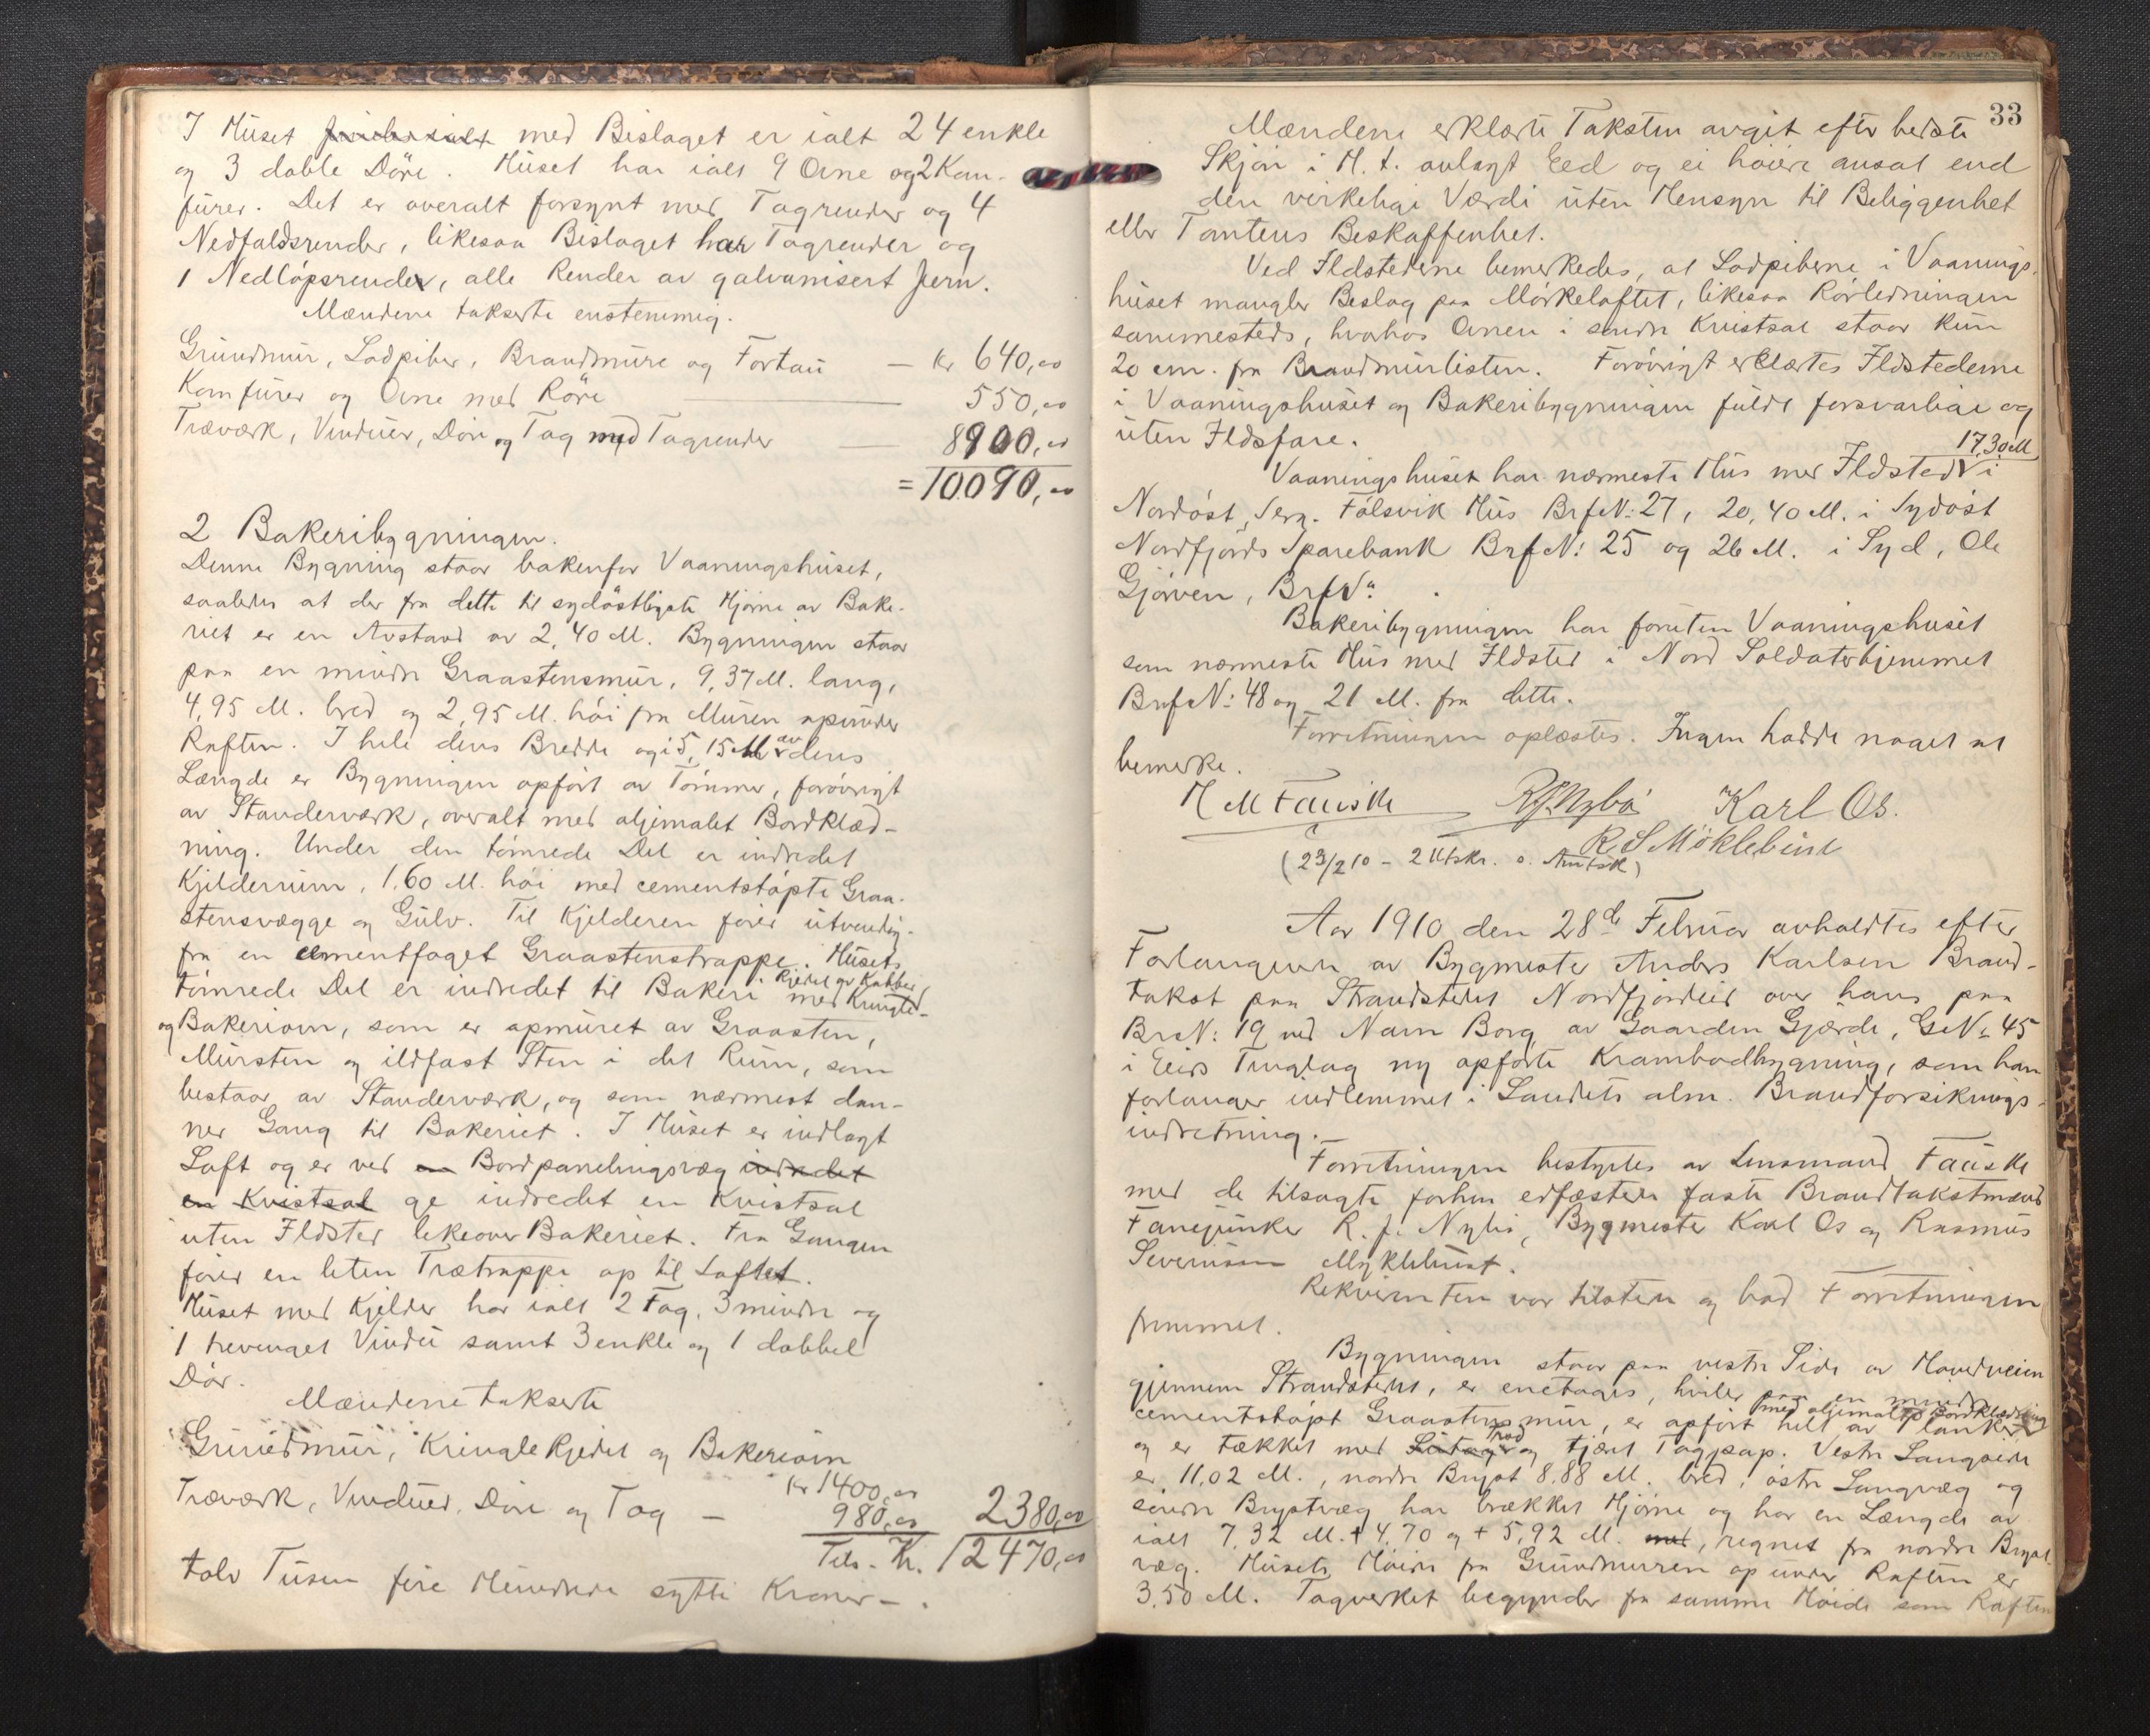 I Huset med Bislaget er ialt 24 enkle
og 3 doble Döre. Huset har ialt 9 Ovne og 2 Kom-
fürer. Det er overalt forsynt med Tagrender og 4
Nedfaldsrender, likesaa Bislaget har Tagrender og
1 Nedlöpsrender, alle Render av galvanisert Jern.
Mændene takserte enstemmig.
Gründmür, Lodpiber, Brandmüre og Fortaü — Kr 640,00
Komfürer og Ovne med Röre — 550,00
Træværk, Vindüer, Döre og Tag med Tagrender — 8900,00
= 10090,00
2 Bakeribygningen.
Denne Bygning staar bakenfor Vaaningshüset,
saaledes at der fra dette til sydöstligste Hjörne av Bake-
riet er en Avstand av 2,40 M. Bygningen staar
paa en mindre Graastensmür, 9,37 M. lang,
4,95 M. bred og 2,95 M. höi fra Müren op under
Raften. I hele dens Bredde og i 5,15 M av dens
Længde er Bygningen opfört av Tömmer, forövrigt
av Standerværk, overalt med oljemalet Bordklæd-
ning. Under den tömrede Del er indredet
Kjelderrüm, 1,60 M. höi med cementstöpte Graa-
stensvægge og Gülv. Til Kjelderen förer ütvendig-
fra en cementfüget Graastenstrappe. Hüsets
tömrede Del er indredet til Bakeri med Kringle-
Kjedel av Kobber
og Bakeriovn, som er opmüret av Graasten,
Mürsten og ildfast Sten i det Rüm, som
bestaar av Standerværk, og som nærmest dan-
ner Gang til Bakeriet. I Hüset er indlagt
Loft og er ved en Bordpanelingsvæg indredet
en Kvistsal indredet en Kvistsal
üten Ildsted likeover Bakeriet. Fra Gangen
förer en liten Trætrappe op til Loftet.
Hüset med Kjelder har ialt 2 Fag, 3 mindre og
1 trevinget Vindü samt 3 enkle og 1 dobbel
Dör.
Mændene takserte
Gründmür, Kringlekjedel og Bakeriovn
Kr 1400,00
Træværk, Vindüer, Döre og Tag — 980,00 2380,00
Tils. Kr. 12470,00
tolv Tüsen fire Hündrede sytti Kroner — .
33
Mændene erklærte Taksten avgit efter bedste
Skjön i H. t. avlagt Eed og ei höiere ansat end
den virkelige Værdi üten Hensyn til Beliggenhet
eller Tomtens Beskaffenhet.
Ved Ildstederne bemerkedes, at Lodpiberne i Vaanings-
hüset mangler Beslag paa Mörkeloftet, likesaa Rörledningen
sammesteds, hvorhos Ovnen i söndre Kvistsal staar kün
20 cm. fra Brandmürlisten. Forövrigt erklærtes Ildstederne
i Vaaningshüset og Bakeribygningen füldt forsvarlige og
üten Ildsfare.
17,30 M
Vaaningshüset har nærmeste Hüs med Ildsted i
Nordöst, Serg. Fölsvik Hüs BrfN: 27, 20,40 M. i Sydöst
Nordfjords Sparebank BrfN: 25 og 26 M. i Syd, Ole
Gjörven, BrfN: .
Bakeribygningen har forüten Vaaningshüset
som nærmeste Hüs med Ildsted i Nord Soldaterhjemmet
BrfN: 48 og 21 M. fra dette.
Forretningen oplæstes. Ingen hadde noget at
bemerke.
H M Faüske R J Nybö Karl Os.
R S Möklebüst
(23/2 10 – 2 Utskr. o. Amtsk)
Aar 1910 den 28de Februar avholdtes efter
Forlangende av Bygmester Anders Karlsen Brand-
takst paa Strandstedet Nordfjordeid over hans paa
BrN: 19 ved Navn Borg av Gaarden Gjærde, GN: 45
i Eids Tinglag ny opförte Krambodbygning, som han
forlanger indlemmet i Landets alm. Brandforsikrings-
indretning.
Forretningen bestyrtes av Lensmand Faüske
med de tilsagte forhen edfæstede faste Brandtakstmænd
Fanejünker R. J. Nybö, Bygmester Karl Os og Rasmüs
Severinsen Myklebüst.
Rekvirenten var tilstede og bad Forretningen
fremmet.
Bygningen staar paa vestre Side av Hovedveien
gjennem Strandstedet, er enetages, hviler paa en mindre
cementstöpt Graastensmür, er opfört helt av Planker
med oljemalt Bordklædning
og er tækket med Trod og tjæret Tagpap. Vestre Langside
er 11,02 M., nordre Bryst 8,88 M. bred, östre Langvæg og
söndre Brystvæg har brækket Hjörne og har en Længde av
ialt 7,32 M. + 4,70 og + 5,92 M. med, regnet fra nordre Bryst-
væg. Hüsets Höide fra Gründmüren op ünder Raften er
3,50 M. Tagverket begynder fra samme Höide som Raften